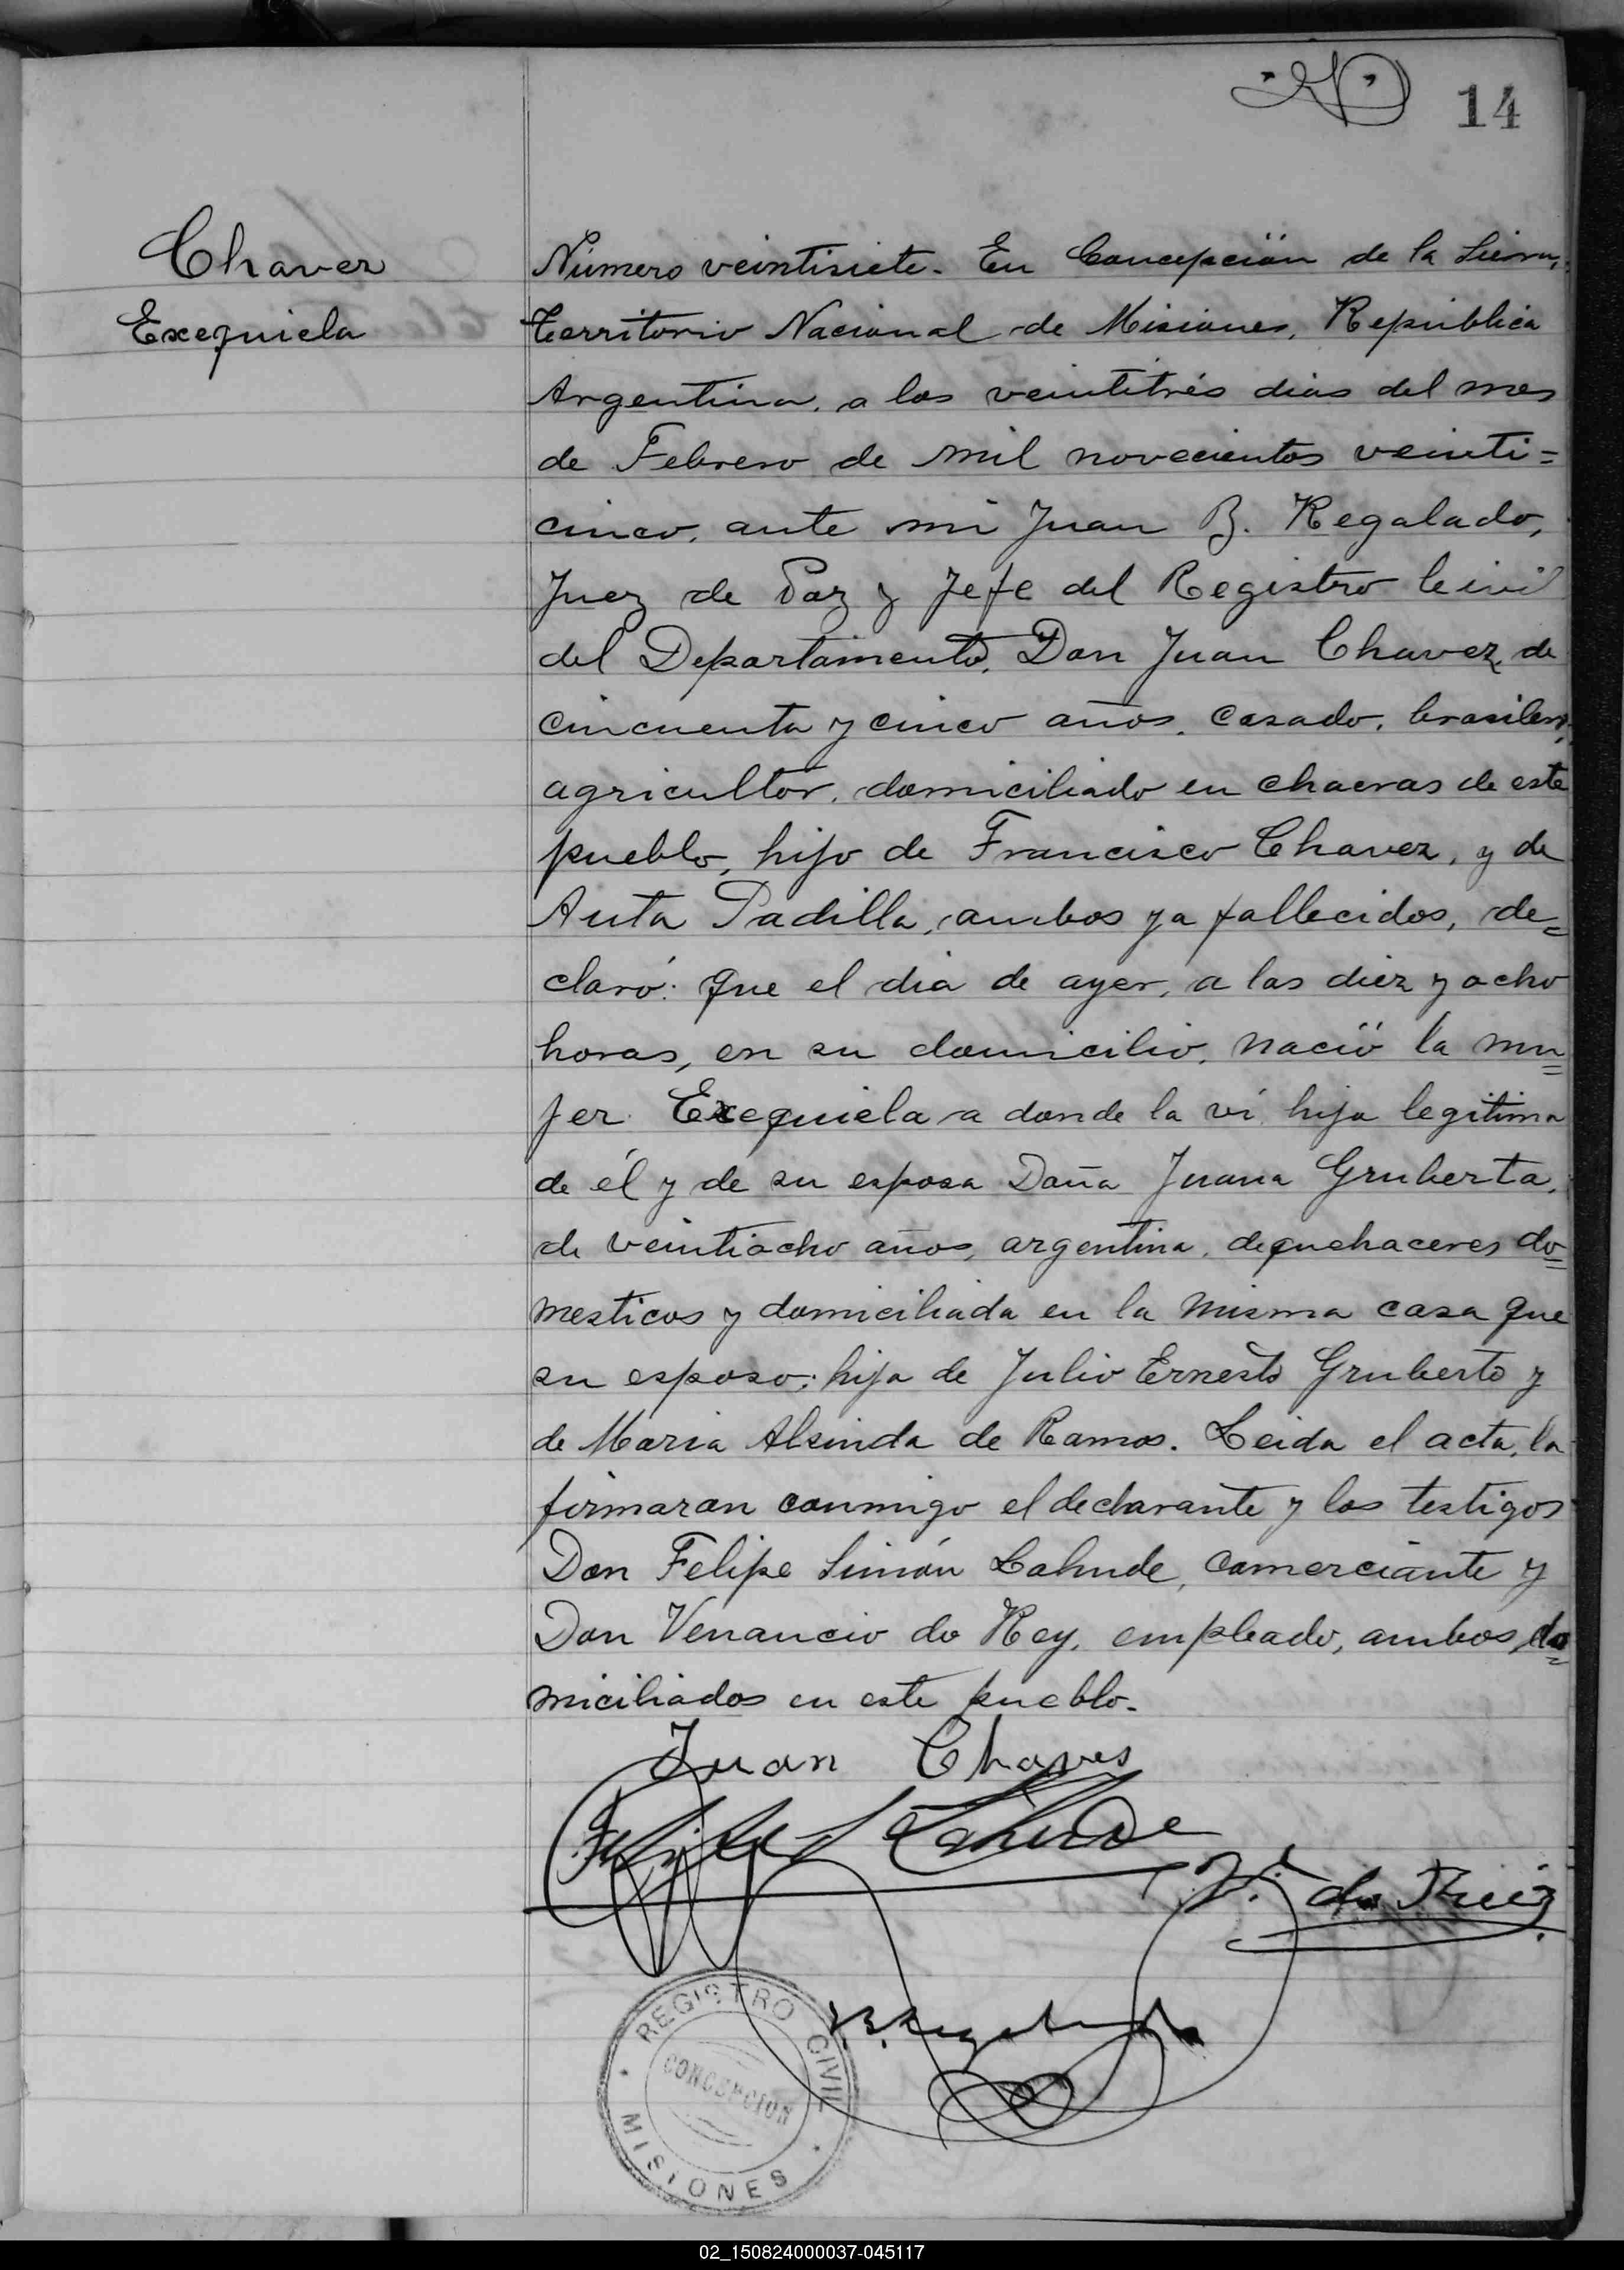 14
Chavez
Exequiela
Número veintisiete. En Concepción de la Sierra,
Territorio Nacional de Misiones, República
Argentina, a los veintitrés dias del mes
de Febrero de mil novecientos veinti=
cinco, ante mi Juan B. Regalado,
Juez de Paz y Jefe del Registro Civil
del Departamento, Don Juan Chavez, de
cincuenta y cinco años, casado, brasilero,
agricultor, domiciliado en chacras de este
pueblo, hijo de Francisco Chavez, y de
Anta Padilla, ambos ya fallecidos, de=
claró: Que el dia de ayer, a las diez y ocho
horas, en su domicilio, nació la mu=
jer Exequiela a donde la ví, hija legitima
de él y de su esposa Doña Juana Gruberta,
de veintiocho años, argentina, de quehaceres do=
mesticos y domiciliada en la misma casa que
su esposo; hija de Julio Ernesto Gruberto y
de Maria Alsinda de Ramos. Leida el acta, la
firmaron conmigo el declarante y los testigos
Don Felipe Simón Lahude, comerciante y
Don Venancio do Rey, empleado, ambos do=
miciliados en este pueblo.
Juan Chaves
Felipe S Lahude
V. do Rey
REGISTRO CIVIL
CONCEPCION
MISIONES
02_150824000037-045117